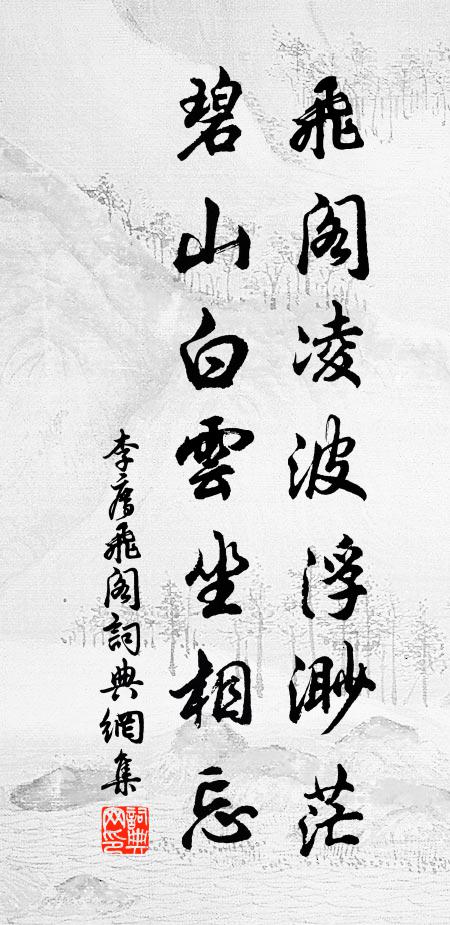 飛閣凌波浮渺茫
碧山白雲坐相忘
李廌飛閣詞典網集
詞典網印